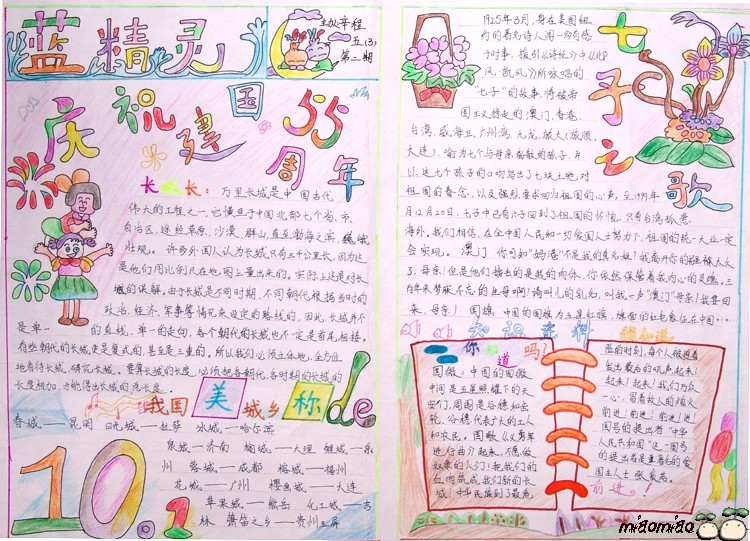 蓝精灵
五(3)
第二期
庆祝建国55周年
长城长：万里长城是中国古代
伟大的工程之一，它横亘于中国北部七个省、市、
自治区，途经草原、沙漠、群山，直至渤海之滨，巍峨
壮观。 许多外国人认为长城只有三千公里长，因为这
是他们用比例尺在地图上量出来的。实际上这是对长
城的误解。由于长城是不同时期、不同朝代根据当时的
政治、经济、军事等情况来设定的路线的，因此，长城并不
是单一的直线、单一的走向，各个朝代的长城也不一定是首尾相接。
有些朝代的长城更是复式的，甚至是三重的，所以我们必须立体地、全方位
地看待长城、研究长城。要算长城的长度，必须把各朝代、各时期的长城的
长度相加，才能得出长城的总长度。
我国美城乡de称
春城——昆明 日光城——拉萨 冰城——哈尔滨
泉城——济南 榆城——大理 鲤城——泉
州 蓉城——成都 榕城——福州
花城——广州 樱画城——大连
苹果城——熊岳 化工城——吉
林 箫笛之乡——贵州玉屏
10.1
七子之歌
1925年3月，身在美国纽
约的著名诗人闻一多有感
于时事，援引《诗经》中《邶
风·凯风》所咏唱的
“七子”的故事，将被帝
国主义掠走的澳门、香港、
台湾、威海卫、广州湾、九龙、旅大（旅顺、
大连），喻为七个与母亲离散的孩子，并
以这七个孩子的口吻写出了七块土地，对
祖国的眷念，以及强烈要求回归祖国的心声。至1999年
12月20日，七子中已有六子回到了祖国的怀抱，只有台湾孤悬
海外。我们相信，在全中国人民和一切爱国人士努力下，祖国的统一大业一定
会实现。 澳门 你可知“妈港”不是我的真名姓！我离开你的襁褓太久
了，母亲！但是他们掳去的是我的肉体，你依然保管着我内心的灵魂。三
百年来梦寐不忘的生母啊！请叫儿的乳名，叫我一声“澳门”！母亲！我要回
来，母亲！ 国旗：中国的国旗为五星红旗，旗面的红色象征在中国…
知识百科
你知道吗！
国徽：中国的国徽
中间是五星照耀下的天
安门，周围是谷穗和齿
轮，谷穗代表广大的工人
和农民。国歌《义勇军
进行曲》起来，不愿做
奴隶的人们！把我们的
血肉筑成我们新的长
城！中华民族到了最危
险的时刻，每个人被迫着
发出最后的吼声，起来！
起来！起来！我们万众
一心，冒着敌人的炮火
前进！前进！前进！进！
国号的提出者“中华
人民共和国”这一国号
的提出者是著名的爱
国主义士张奚若。
前进。！
miaomiao